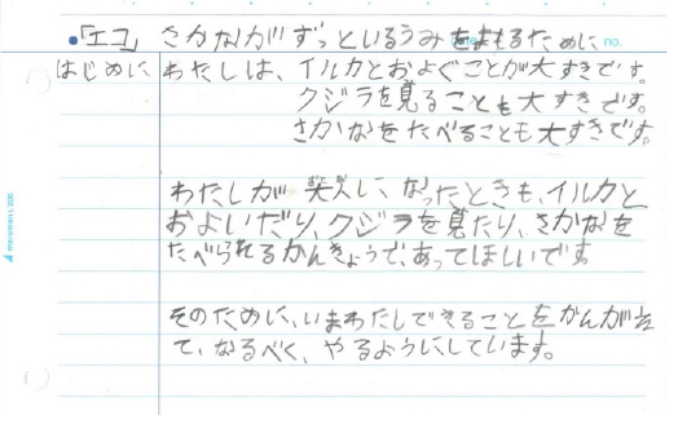 ●「エコ」 さかながずっといるうみをまもるために no.
はじめに わたしは、イルカとおよぐことが大すきです。
クジラを見ることも大すきです。
さかなをたべることも大すきです。
わたしが なったときも、イルカと
およいだり、クジラを見たり、さかなを
たべられるかんきょうで、あってほしいです
そのために、いまわたしできることをかんがえ
て、なるべく、やるようにしています。
maruman